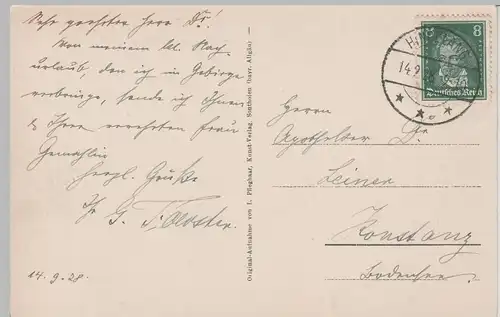 Sehr geehrter Herr Dr!
Von meinem kl. Nach-
urlaub, den ich im Gebirge
verbringe, sende ich Ihnen
& Ihrer verehrten Frau
Gemahlin
herzl. Grüße
Ihr G.
14. 9. 28.
Original-Aufnahme von I. Pfleghaar, Kunst-Verlag, Sonthofen (bayr. Allgäu)
8
Deutsches Reich
14.9
Herrn
Apotheker Dr.
Leiner
Konstanz
Bodensee.